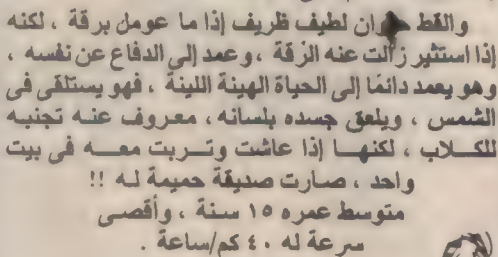 والقط حيوان لطيف ظريف إذا ما عومل برقة ، لكنه
إذا استثير زالت عنه الرقة ، وعمد إلى الدفاع عن نفسه ،
وهو يعمد دائما إلى الحياة الهينة اللينة ، فهو يستلقى فى
الشمس ، ويلعق جسده بلسانه ، معروف عنه تجنبه
للكلاب ، لكنها إذا عاشت وتربت معه فى بيت
واحد ، صارت صديقة حميمة له !!
متوسط عمره ١٥ سنة ، وأقصى
سرعة له ٤٠ كم/ساعة .